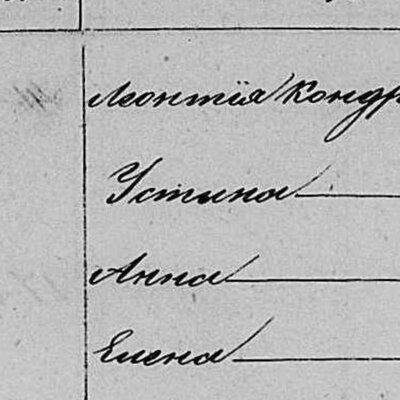 Леонтія Кондр
Устина
Анна
Елена